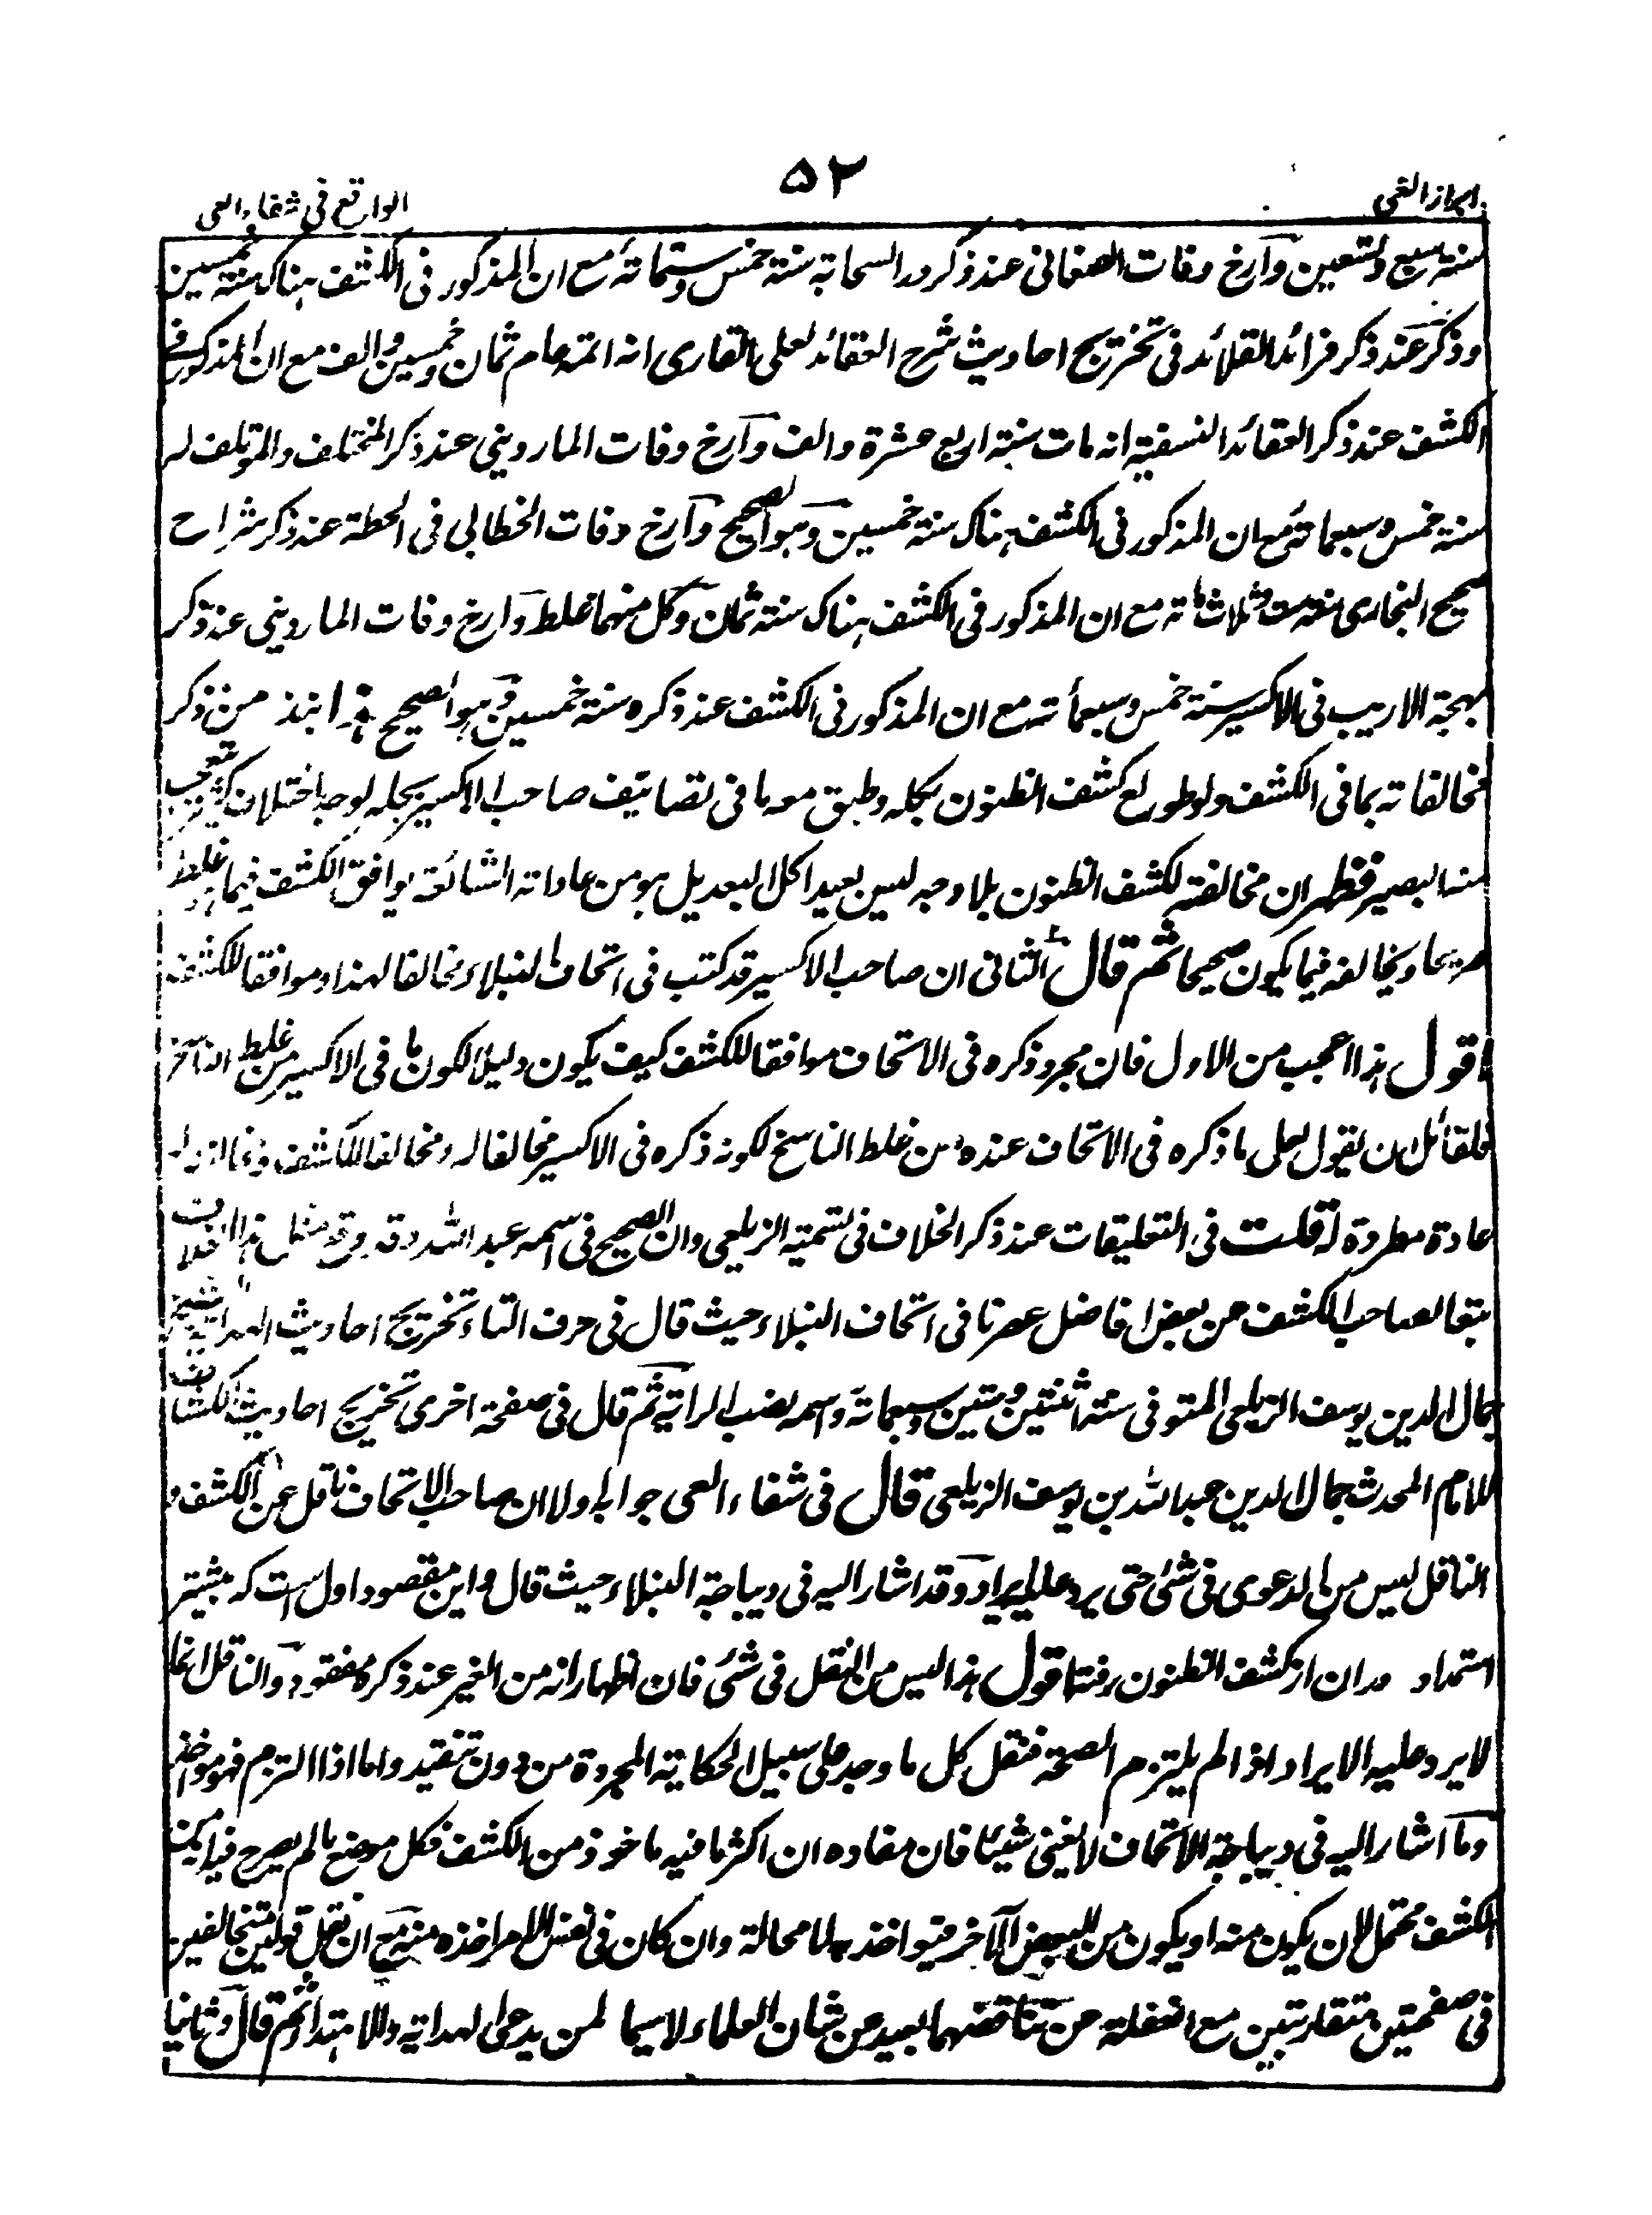 ابراز الغی
۵۲
الواقع فی شفاء العی
سنة سبع وتسعين وآرخ وفات الصغانی عند ذكر در السحابة سنة خمس وستمائة مع ان المذكور فی الكشف هناك سنة خمسين
وذكر عند ذكر فرائد القلائد فی تخريج احاديث شرح العقائد لعلی القاری انه اتمه عام ثمان وخمسين والف مع ان المذكور فی
الكشف عند ذكر العقائد النسفية انه مات سنة اربع عشرة والف وآرخ وفات الماردينی عند ذكر المختلف والمؤتلف له
سنة خمس وسبعمائة مع ان المذكور فی الكشف هناك سنة خمسين وهو الصحيح وآرخ وفات الخطابی فی الحطة عند ذكر شراح
صحيح البخاری سنة ست وثلاثمائة مع ان المذكور فی الكشف هناك سنة ثمان وكل منهما غلط وآرخ وفات الماردينی عند ذكر
بهجة الاريب فی الاكسير سنة خمس وسبعمأته مع ان المذكور فی الكشف عند ذكره سنة خمسين وهو الصحيح فهذا نبذ من ذكر
مخالفاته بما فی الكشف ولو طولع كشف الظنون بكله وطبق معه ما فی تصانيف صاحب الاكسير بجله لوجد اختلاف كثير يتعجب
منه البصير فظهر ان مخالفته لكشف الظنون بلا وجه ليس ببعيد كل البعد بل هو من عاداته الشائعة يوافق الكشف فيما هو غلط
صريحا ويخالفه فيما يكون صحيحا ثم قال الثانی ان صاحب الاكسير قد كتب فی اتحاف النبلاء مخالفا لهذا وموافقا للكشف
اقول هذا اعجب من الاول فان مجرد ذكره فی الاتحاف موافقا للكشف كيف يكون دليلا لكون ما فی الاكسير من غلط الناسخ
فلقائل ان يقول لعل ما ذكره فی الاتحاف عنده من غلط الناسخ لكونه ذكره فی الاكسير مخالفا له ومخالفا للكشف ومخالفته له
عادة مطردة له قلت فی التعليقات عند ذكر الخلاف فی تسمية الزيلعی وان الصحيح فی اسمه عبد الله وقد وقع مثل هذا الاختلاف
تبعا لصاحب الكشف من بعض افاضل عصرنا فی اتحاف النبلاء حيث قال فی حرف التاء تخريج احاديث الهداية للشيخ
جمال الدين يوسف الزيلعی المتوفی سنة اثنتين وستين وسبعمائة واسمه نصب الراية ثم قال فی صفحة اخری تخريج احاديث الكشاف
للامام المحدث جمال الدين عبد الله بن يوسف الزيلعی قال فی شفاء العی جوابا له اولا ان صاحب الاتحاف ناقل عن الكشف و
الناقل ليس من الدعوی فی شئ حتی يرد عليه ايراد وقد اشار اليه فی ديباجة النبلاء حيث قال واين مقصود اول ست كه بيشتر
استمداد دران از كشف الظنون رفته اقول هذا ليس من النقل فی شئ فان اظهار انه من الغير عند ذكره مفقود والناقل انما
لا يرد عليه الايراد اذا لم يلتزم الصحة فنقل كل ما وجد علی سبيل الحكاية المجردة من دون تنقيد واما اذا التزم فهو مواخذ
وما اشار اليه فی ديباجة الاتحاف لا يغنی شيئا فان مفاده ان اكثر ما فيه ماخوذ من الكشف فكل موضع ما لم يصرح فيه انه من
الكشف محتمل لان يكون منه او يكون من البعض الآخر فيواخذ به لا محالة وان كان فی نفس الامر اخذه منه مع ان نقل قولين متخالفين
فی صفحتين متقاربتين مع الغفلة عن تناقضهما بعيد عن شان العلماء لا سيما لمن يدعی الهداية والاهتداء ثم قال وثانيا